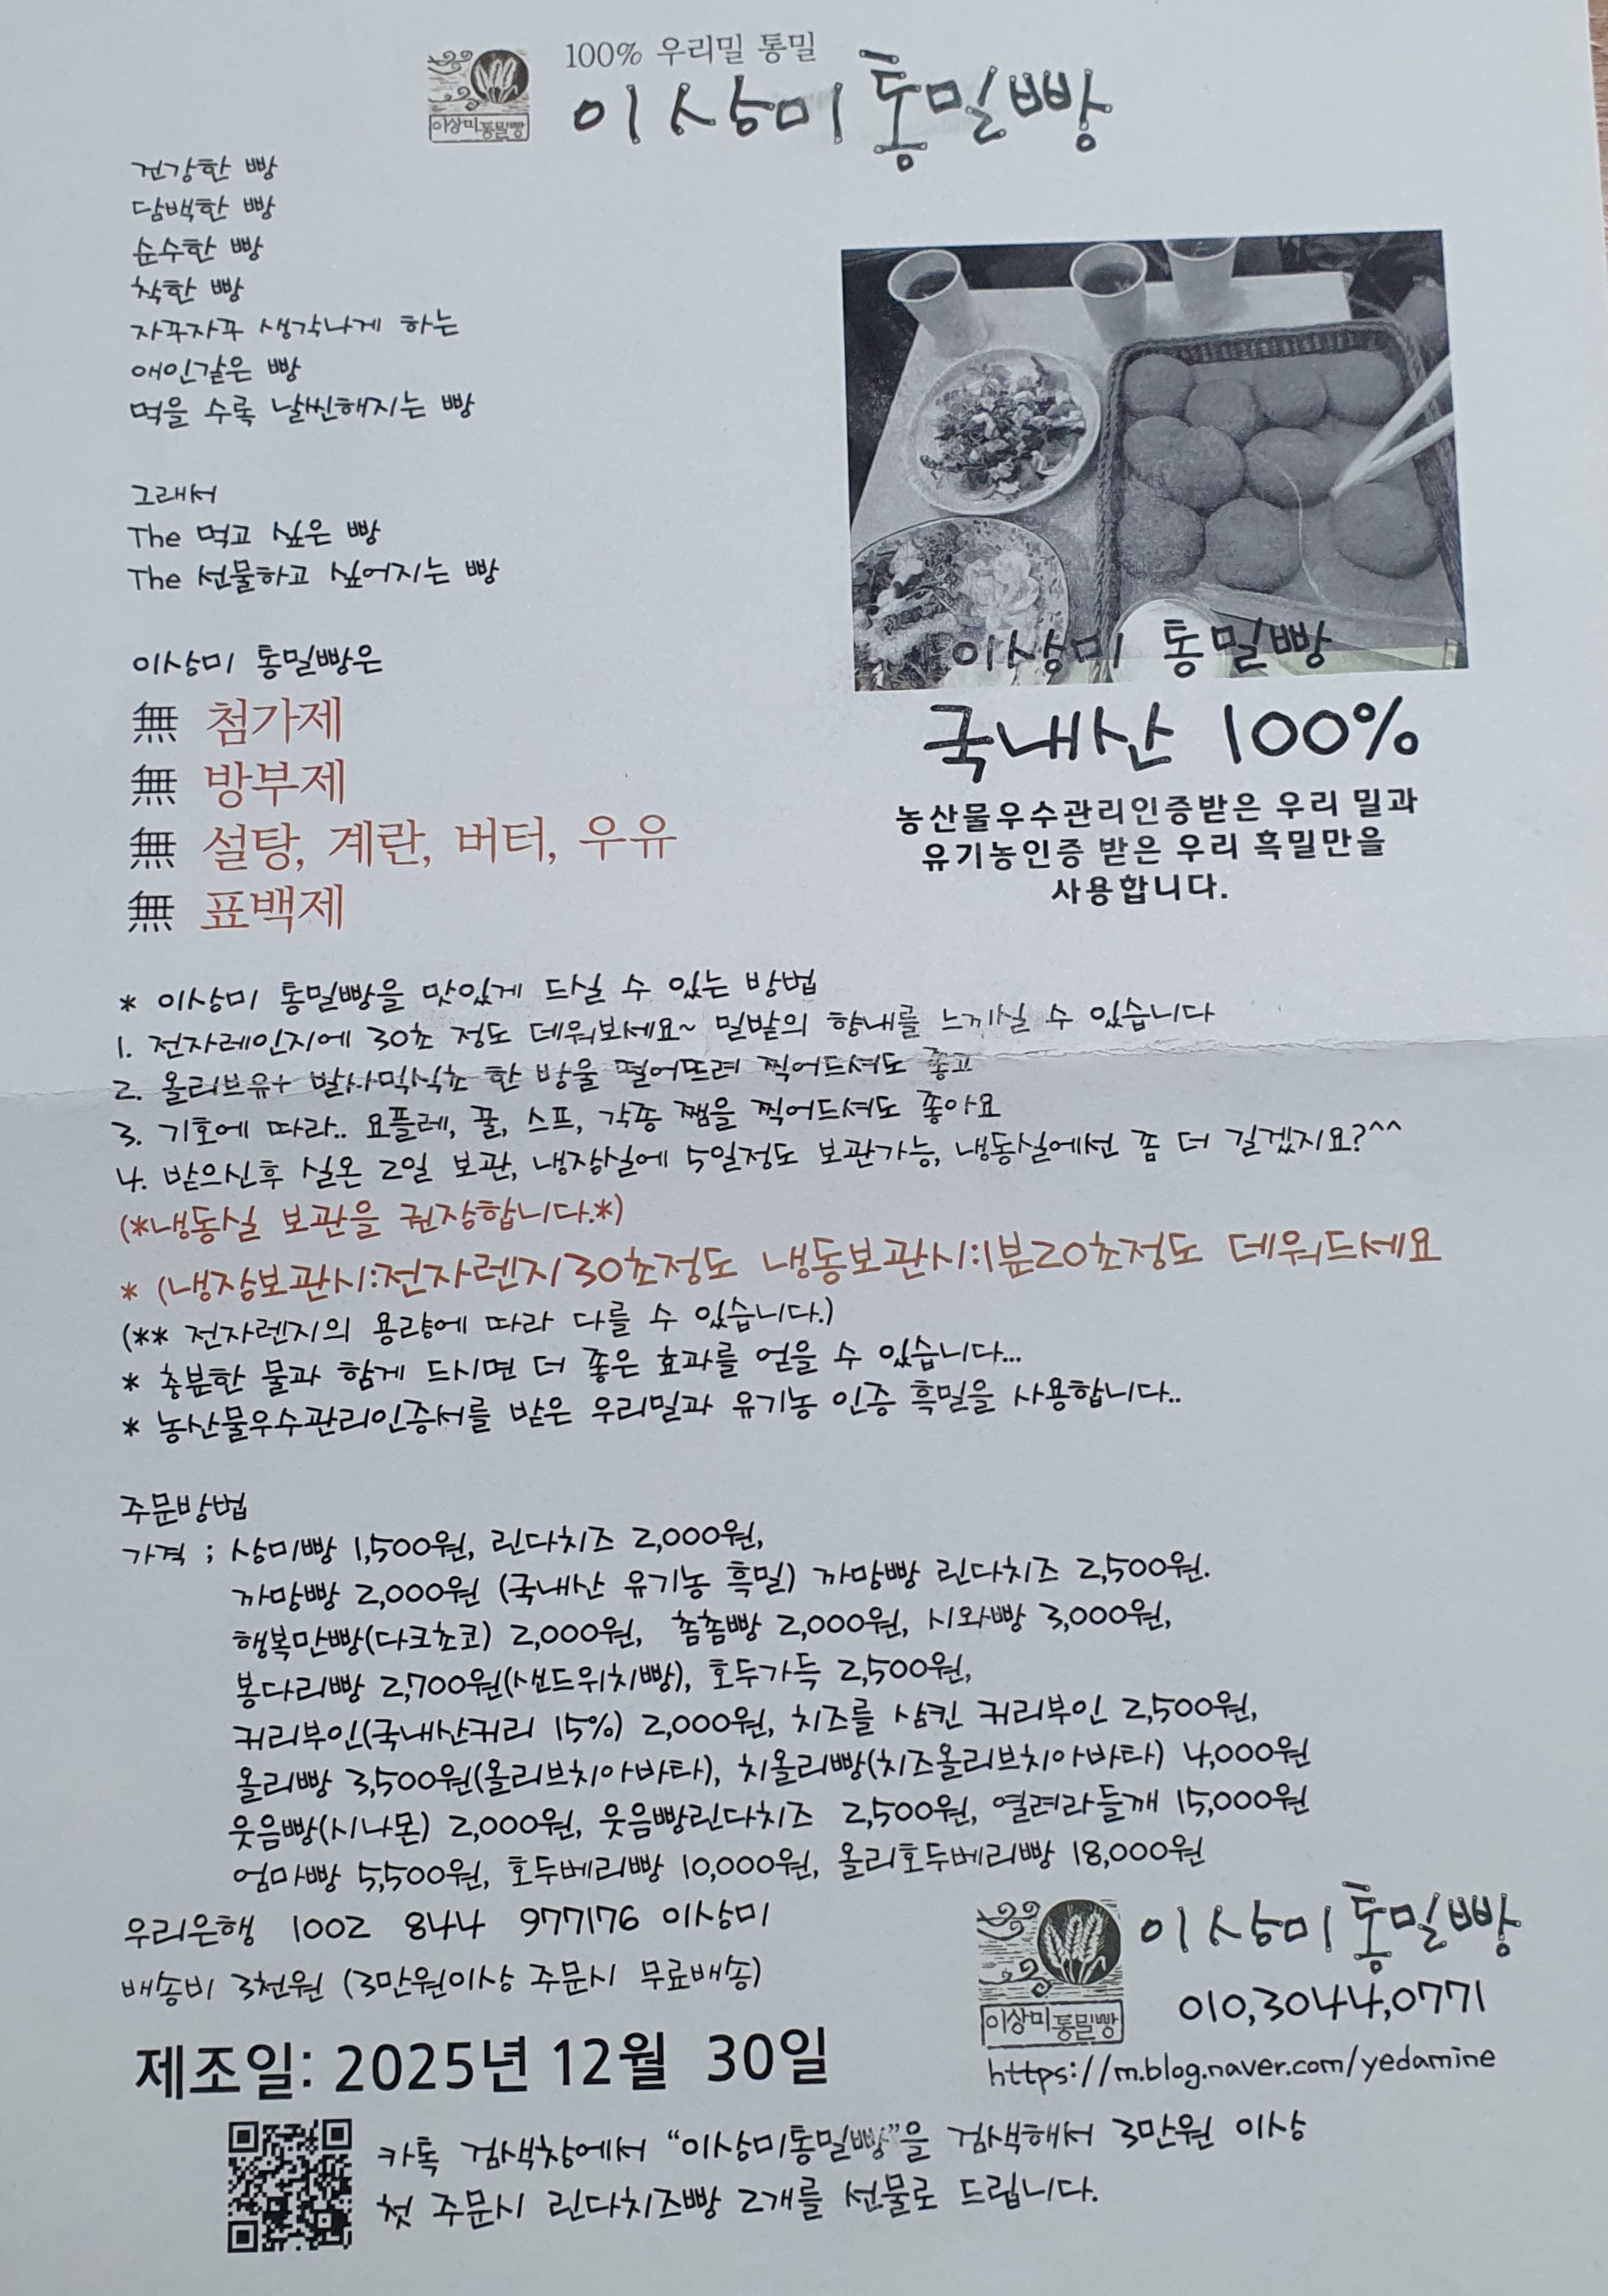 100% 우리밀 통밀
이상미통밀빵
이상미통밀빵
건강한 빵
담백한 빵
순수한 빵
착한 빵
자꾸자꾸 생각나게 하는
애인같은 빵
먹을 수록 날씬해지는 빵
그래서
The 먹고 싶은 빵
The 선물하고 싶어지는 빵
이상미 통밀빵은
無 첨가제
無 방부제
無 설탕, 계란, 버터, 우유
無 표백제
이상미 통밀빵
국내산 100%
농산물우수관리인증받은 우리 밀과
유기농인증 받은 우리 흑밀만을
사용합니다.
* 이상미 통밀빵을 맛있게 드실 수 있는 방법
1. 전자레인지에 30초 정도 데워보세요~ 밀밭의 향내를 느끼실 수 있습니다
2. 올리브유+ 발사믹식초 한 방울 떨어뜨려 찍어드셔도 좋고
3. 기호에 따라.. 요플레, 꿀, 스프, 각종 쨈을 찍어드셔도 좋아요
4. 받으신후 실온 2일 보관, 냉장실에 5일정도 보관가능, 냉동실에선 좀 더 길겠지요?^^
(*냉동실 보관을 권장합니다.*)
* (냉장보관시:전자렌지30초정도 냉동보관시:1분20초정도 데워드세요
(** 전자렌지의 용량에 따라 다를 수 있습니다.)
* 충분한 물과 함께 드시면 더 좋은 효과를 얻을 수 있습니다...
* 농산물우수관리인증서를 받은 우리밀과 유기농 인증 흑밀을 사용합니다..
주문방법
가격 ; 상미빵 1,500원, 린다치즈 2,000원,
까망빵 2,000원 (국내산 유기농 흑밀) 까망빵 린다치즈 2,500원.
행복만빵(다크쵸코) 2,000원, 촘촘빵 2,000원, 시와빵 3,000원,
봉다리빵 2,700원(샌드위치빵), 호두가득 2,500원,
커리부인(국내산커리 15%) 2,000원, 치즈를 삼킨 커리부인 2,500원,
올리빵 3,500원(올리브치아바타), 치올리빵(치즈올리브치아바타) 4,000원
웃음빵(시나몬) 2,000원, 웃음빵린다치즈 2,500원, 열려라들깨 15,000원
엄마빵 5,500원, 호두베리빵 10,000원, 올리호두베리빵 18,000원
우리은행 1002 844 977176 이상미
배송비 3천원 (3만원이상 주문시 무료배송)
이상미통밀빵
이상미통밀빵
010,3044,0771
https://m.blog.naver.com/yedamine
제조일: 2025년 12월 30일
카톡 검색창에서 “이상미통밀빵”을 검색해서 3만원 이상
첫 주문시 린다치즈빵 2개를 선물로 드립니다.